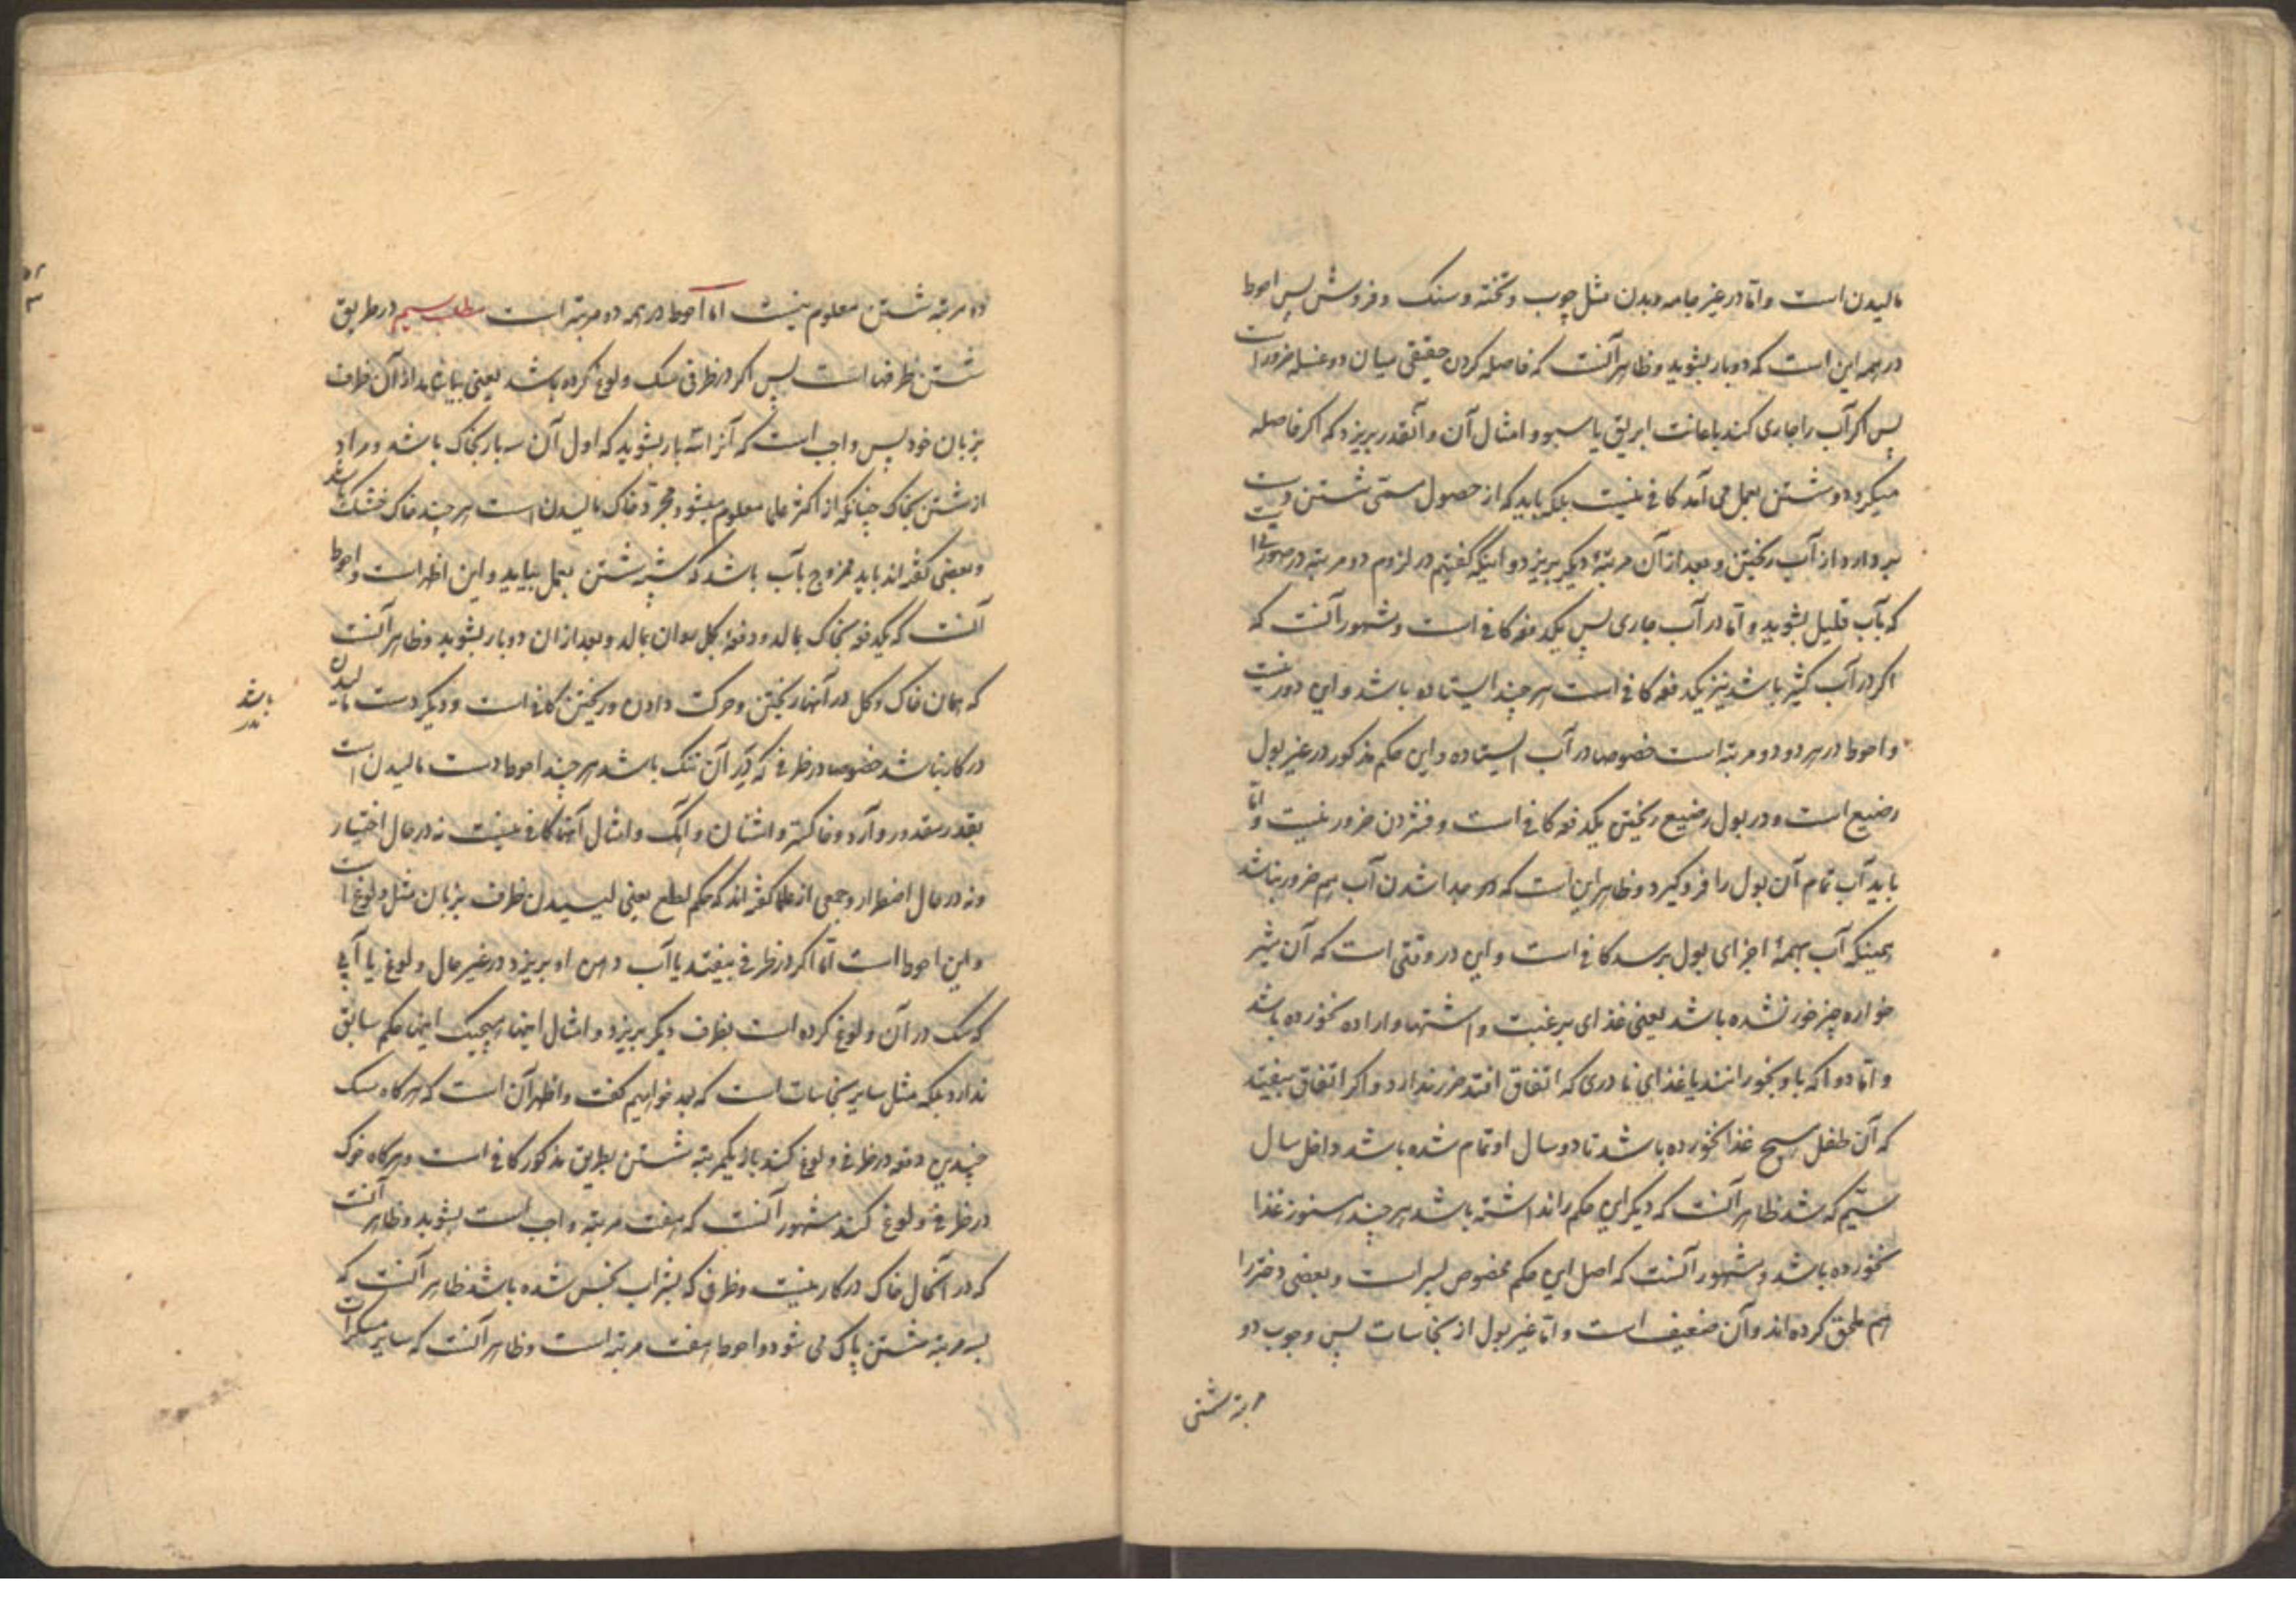 مالیدن است و امّا در غیر جامه و بدن مثل چوب و تخته و سنک و فروش پس احوط
در همه این است که دو بار بشوید و ظاهر آنست که فاصله کردن حقیقی میان دو غسله ضرور است
پس اکر آب را جاری کند باعانت ابریق یا سبو و امثال آن و آنقدر بریزد که اکر فاصله
میکرد دو شستن بعمل می آمد کافی نیست بلکه باید که از حصول مسمّی شستن دست
بردارد از آب ریختن و بعد از آن مرتبهٔ دیکر بریزد و اینکه کفتیم در لزوم دو مرتبه در صورتی است
که بآب قلیل بشوید و امّا در آب جاری پس یکدفعه کافی است و مشهور آنست که
اکر در آب کثیر باشد نیز یکدفعه کافی است هر چند ایستاده باشد و این دور نیست
و احوط در هر دو دو مرتبه است خصوصا در آب ایستاده و این حکم مذکور در غیر بول
رضیع است و در بول رضیع ریختن یکدفعه کافی است و فشردن ضرور نیست و امّا
باید آب تمام آن بول را فرو کیرد و ظاهر این است که جدا شدن آب هم ضرور نباشد
همینکه آب بهمهٔ اجزای بول برسد کافی است و این در وقتی است که آن شیر
خواره چیز خور نشده باشد یعنی غذای برغبت و اشتها و اراده نخورده باشد
و امّا دوا که باو بخورانند یا غذای نادری که اتفاق افتد ضرر ندارد و اکر اتفاق بیفتد
که آن طفل هیچ غذا نخورده باشد تا دو سال او تمام شده باشد داخل سال
سیّم که شد ظاهر آنست که دیکر این حکم را نداشته باشد هر چند هنوز غذا
نخورده باشد و مشهور آنست که اصل این حکم مخصوص پسر است و بعضی دختر را
هم ملحق کرده اند و آن ضعیف است و امّا غیر بول از نجاسات پس وجوب دو
مرتبه شستن
دو مرتبه شستن معلوم نیست امّا احوط در همه دو مرتبه است مطلب سیم در طریق
شستن ظرفها است پس اکر در ظرفی سک ولوغ کرده باشد یعنی بیاشامد از آن ظرف
بزبان خود پس واجب است که آنرا سه بار بشوید که اول آن سه بار بخاک باشد و مراد
از شستن بخاک چنانکه از اکثر علما معلوم میشود مجرّد خاک مالیدن است هر چند خاک خشک باشد
و بعضی کفته اند باید ممزوج بآب باشد که شبه شستن بعمل بیاید و این اظهر است و احوط
آنست که یکدفعه بخاک بمالد و دفعهٔ بکل روان بمالد و بعد از ان دو بار بشوید و ظاهر آنست
که همان خاک و کل در آنها ریختن و حرکت دادن و ریختن کافی است و دیکر دست مالیدن
در کار نباشد خصوصا در ظرفی که در آن تنک باشد هر چند احوط دست مالیدن است
بقدر مقدور و آرد و خاکستر و اشنان و آهک و امثال آنها کافی نیست نه در حال اختیار
و نه در حال اضطرار و جمعی از علما کفته اند که حکم لطع یعنی لیسیدن ظرف بزبان مثل ولوغ است
و این احوط است امّا اکر در ظرفی بیفتد یا آب دهن او بریزد در غیر حال ولوغ یا آبی
که سک در آن ولوغ کرده است بظرف دیکر بریزد و امثال اینها هیچیک اینها حکم سابق
ندارد بلکه مثل سایر نجاسات است که بعد خواهیم کفت و اظهر آن است که هر کاه سک
چندین دفعه در ظرفی ولوغ کند باز یکمرتبه شستن بطریق مذکور کافی است و هر کاه خوک
در ظرفی ولوغ کند مشهور آنست که هفت مرتبه واجب است بشوید و ظاهر آنست
که در آنحال خاک در کار نیست و ظرفی که بشراب نجس شده باشد ظاهر آنست که
بسه مرتبه شستن پاک می شود و احوط هفت مرتبه است و ظاهر آنست که سایر مسکرات
باشد